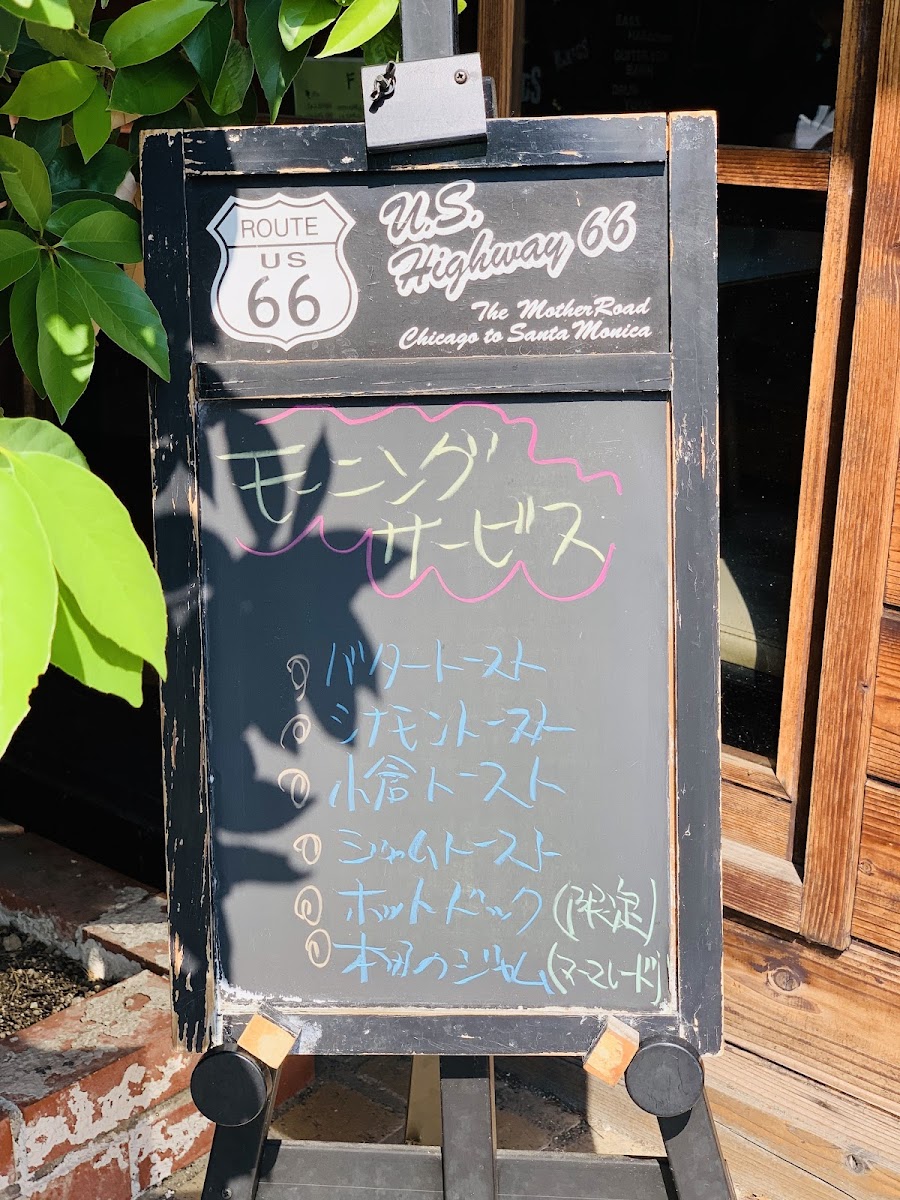 ROUTE
US
66
U.S.
Highway 66
The Mother Road
Chicago to Santa Monica
モーニング
サービス
バタートースト
シナモントースト
小倉トースト
ジャムトースト
ホットドック(限定)
本日のジャム(マーマレード)